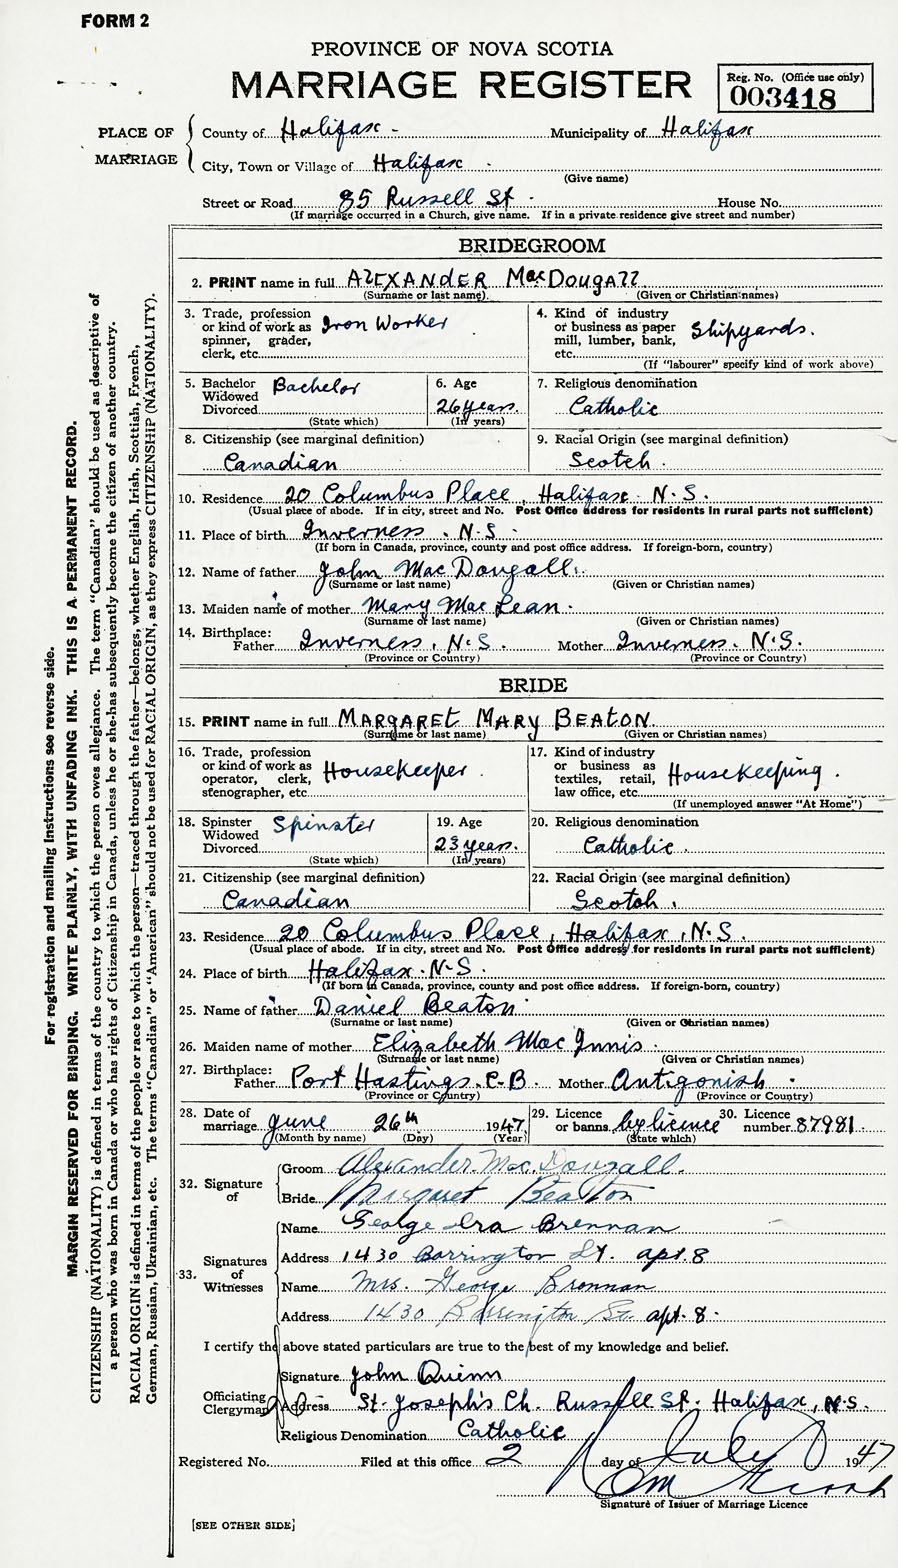 FORM 2
PROVINCE OF NOVA SCOTIA
MARRIAGE REGISTER
Reg. No. (Office use only)
003418
PLACE OF MARRIAGE
County of Halifax - Municipality of Halifax
City, Town or Village of Halifax
(Give name)
Street or Road 85 Russell St House No.
(If marriage occurred in a Church, give name. If in a private residence give street and number)
BRIDEGROOM
2. PRINT name in full ALEXANDER MacDOUGALL
(Surname or last name) (Given or Christian names)
3. Trade, profession or kind of work as spinner, grader, clerk, etc. Iron Worker
4. Kind of industry or business as paper mill, lumber, bank, etc. Shipyards.
(If "labourer" specify kind of work above)
5. Bachelor Widowed Divorced Bachelor
(State which)
6. Age 26 years.
(In years)
7. Religious denomination
Catholic
8. Citizenship (see marginal definition)
Canadian
9. Racial Origin (see marginal definition)
Scotch.
10. Residence 20 Columbus Place, Halifax N.S.
(Usual place of abode. If in city, street and No. Post Office address for residents in rural parts not sufficient)
11. Place of birth Inverness. N.S.
(If born in Canada, province, county and post office address. If foreign-born, country)
12. Name of father John MacDougall.
(Surname or last name) (Given or Christian names)
13. Maiden name of mother Mary MacLean.
(Surname or last name) (Given or Christian names)
14. Birthplace: Father Inverness, N.S. Mother Inverness. N.S.
(Province or Country) (Province or Country)
BRIDE
15. PRINT name in full MARGARET MARY BEATON.
(Surname or last name) (Given or Christian names)
16. Trade, profession or kind of work as operator, clerk, stenographer, etc. Housekeeper.
17. Kind of industry or business as textiles, retail, law office, etc. Housekeeping.
(If unemployed answer "At Home")
18. Spinster Widowed Divorced Spinster
(State which)
19. Age 23 years.
(In years)
20. Religious denomination
Catholic.
21. Citizenship (see marginal definition)
Canadian
22. Racial Origin (see marginal definition)
Scotch.
23. Residence 20 Columbus Place, Halifax, N.S.
(Usual place of abode. If in city, street and No. Post Office address for residents in rural parts not sufficient)
24. Place of birth Halifax. N.S.
(If born in Canada, province, county and post office address. If foreign-born, country)
25. Name of father Daniel Beaton
(Surname or last name) (Given or Christian names)
26. Maiden name of mother Elizabeth MacInnis.
(Surname or last name) (Given or Christian names)
27. Birthplace: Father Port Hastings. C-B. Mother Antigonish.
(Province or Country) (Province or Country)
28. Date of marriage June 26th 1947
(Month by name) (Day) (Year)
29. Licence or banns. by licence
(State which)
30. Licence number 87981
32. Signature of
Groom Alexander. MacDougall.
Bride Margaret Beaton
33. Signatures of Witnesses
Name George Ira Brennan
Address 1430 Barrington St. apt. 8
Name Mrs. George Brennan
Address 1430 Barrington St. apt. 8.
I certify the above stated particulars are true to the best of my knowledge and belief.
Officiating Clergyman
Signature John Quinn
Address St. Joseph's Ch. Russell St. Halifax, N.S.
Religious Denomination Catholic
Registered No. Filed at this office 2 day of July 1947
Signature of Issuer of Marriage Licence
[SEE OTHER SIDE]
For registration and mailing instructions see reverse side.
MARGIN RESERVED FOR BINDING. WRITE PLAINLY, WITH UNFADING INK. THIS IS A PERMANENT RECORD.
CITIZENSHIP (NATIONALITY) is defined in terms of the country to which the person owes allegiance. The term "Canadian" should be used as descriptive of
a person who was born in Canada or who has rights of Citizenship in Canada, unless he or she has subsequently become the citizen of another country.
RACIAL ORIGIN is defined in terms of the people or race to which the person—traced through the father—belongs, whether English, Irish, Scottish, French,
German, Russian, Ukrainian, etc. The terms "Canadian" or "American" should not be used for RACIAL ORIGIN, as they express CITIZENSHIP (NATIONALITY).